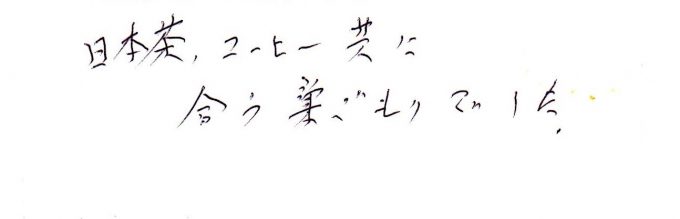 日本茶、コーヒー共に
合う巣ごもりでした。